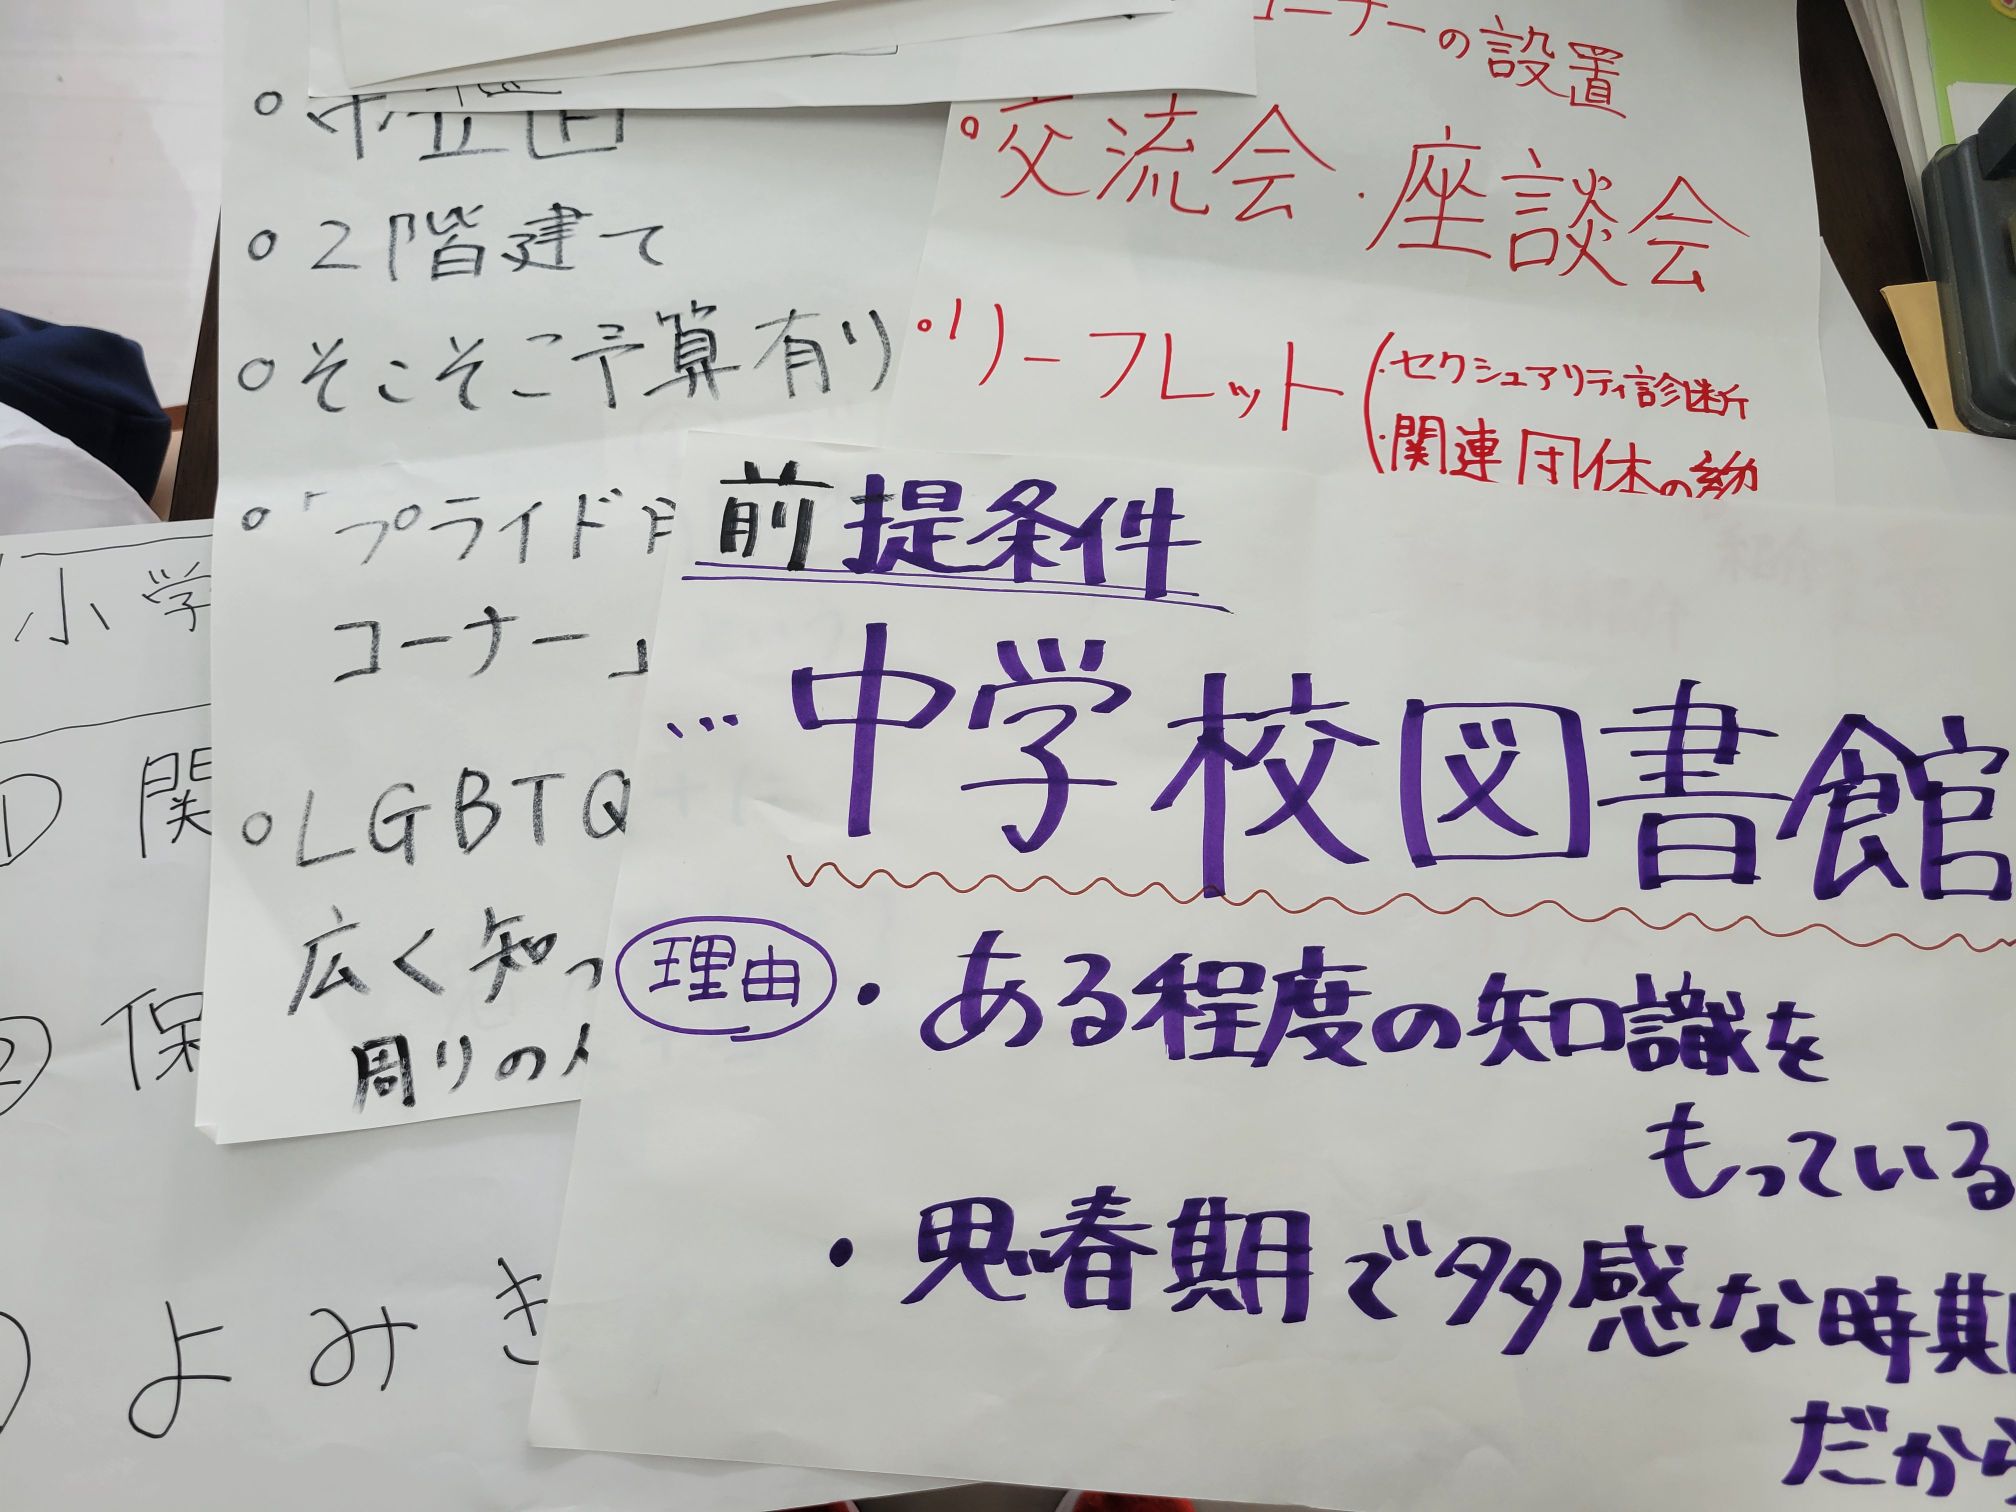 コーナーの設置
・交流会・座談会
・リーフレット(・セクシュアリティ診断
・関連団体の紹
○
○2階建て
○そこそこ予算有り
○「プライド月
コーナー」
○LGBTQ
広く知っ
周りの人
前提条件
…中学校図書館
理由・ある程度の知識を
もっている
・思春期で多感な時期
だから
小学
① 関
② 保
よみき